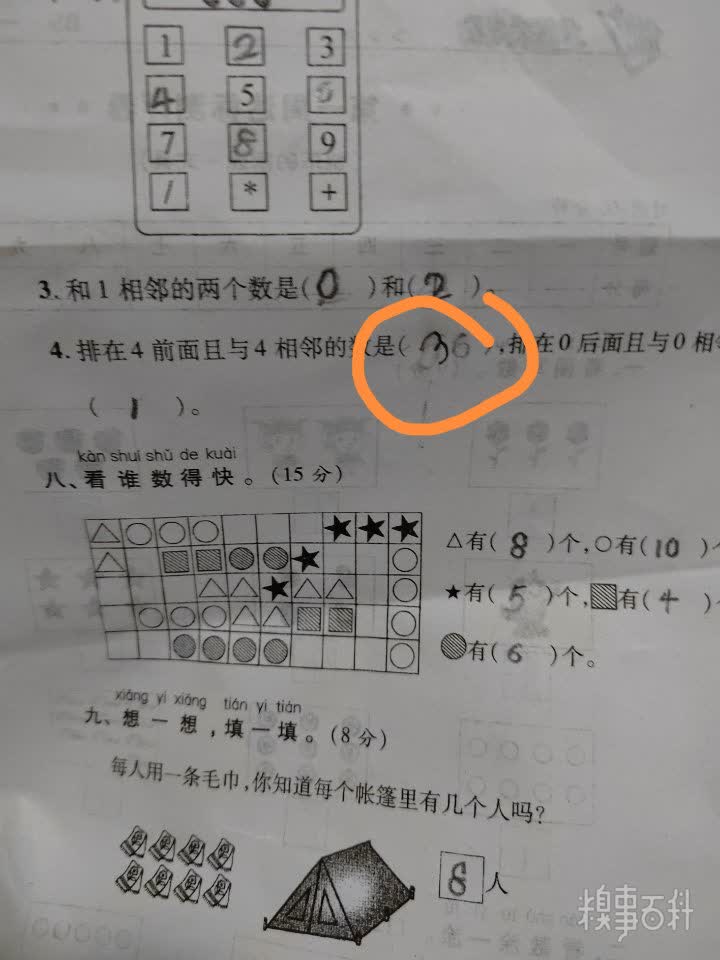 1 2 3
4 5 6
7 8 9
/ * +
3. 和 1 相邻的两个数是( 0 )和( 2 )。
4. 排在 4 前面且与 4 相邻的数是( 36 ),排在 0 后面且与 0 相邻
( 1 )。
kàn shuí shǔ de kuài
八、看谁数得快。(15 分)
△有( 8 )个,○有( 10 )个
★有( 5 )个,有( 4 )
有( 6 )个。
xiǎng yi xiǎng tián yi tián
九、想一想,填一填。(8 分)
每人用一条毛巾,你知道每个帐篷里有几个人吗?
8 人
糗事百科